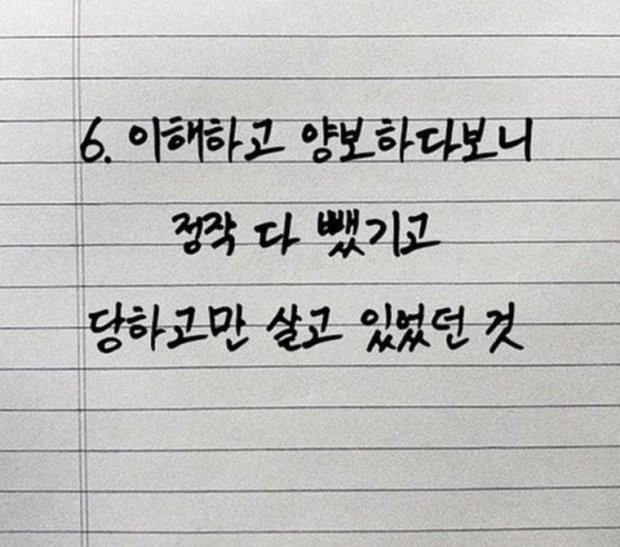 6. 이해하고 양보하다보니
정작 다 뺐기고
당하고만 살고 있었던 것